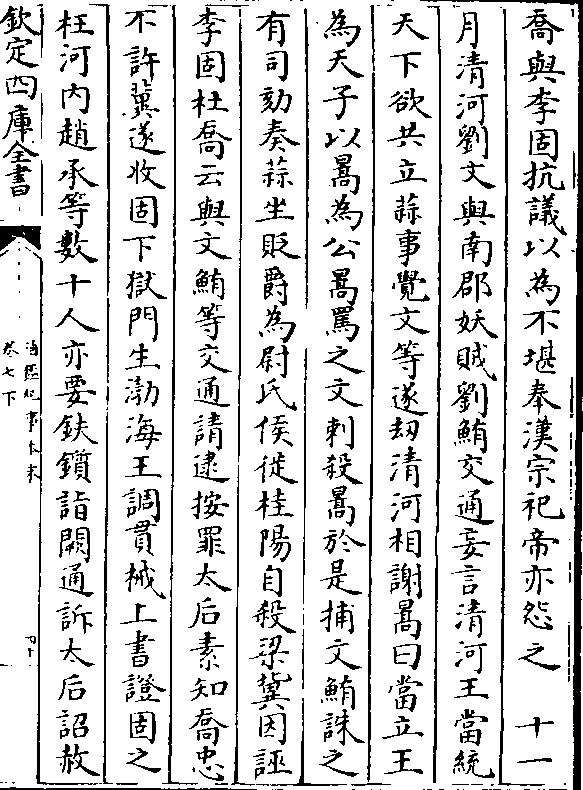 喬與李固抗議以為不堪奉漢宗祀帝亦怨之　十一
月清河劉文與南郡妖賊劉鮪交通妄言清河王當統
天下欲共立蒜事覺文等遂刼清河相謝暠曰當立王
為天子以暠為公暠罵之文刺殺暠於是捕文鮪誅之
有司劾奏蒜坐貶爵為尉氏侯徙桂陽自殺梁冀因誣
李固杜喬云與文鮪等交通請逮按罪太后素知喬忠
不許冀遂收固下獄門生渤海王調貫械上書證固之
枉河内趙承等數十人亦要鈇鑕詣闕通訴太后詔赦
欽定四庫全書
通鑑紀事本末
卷七下
四十